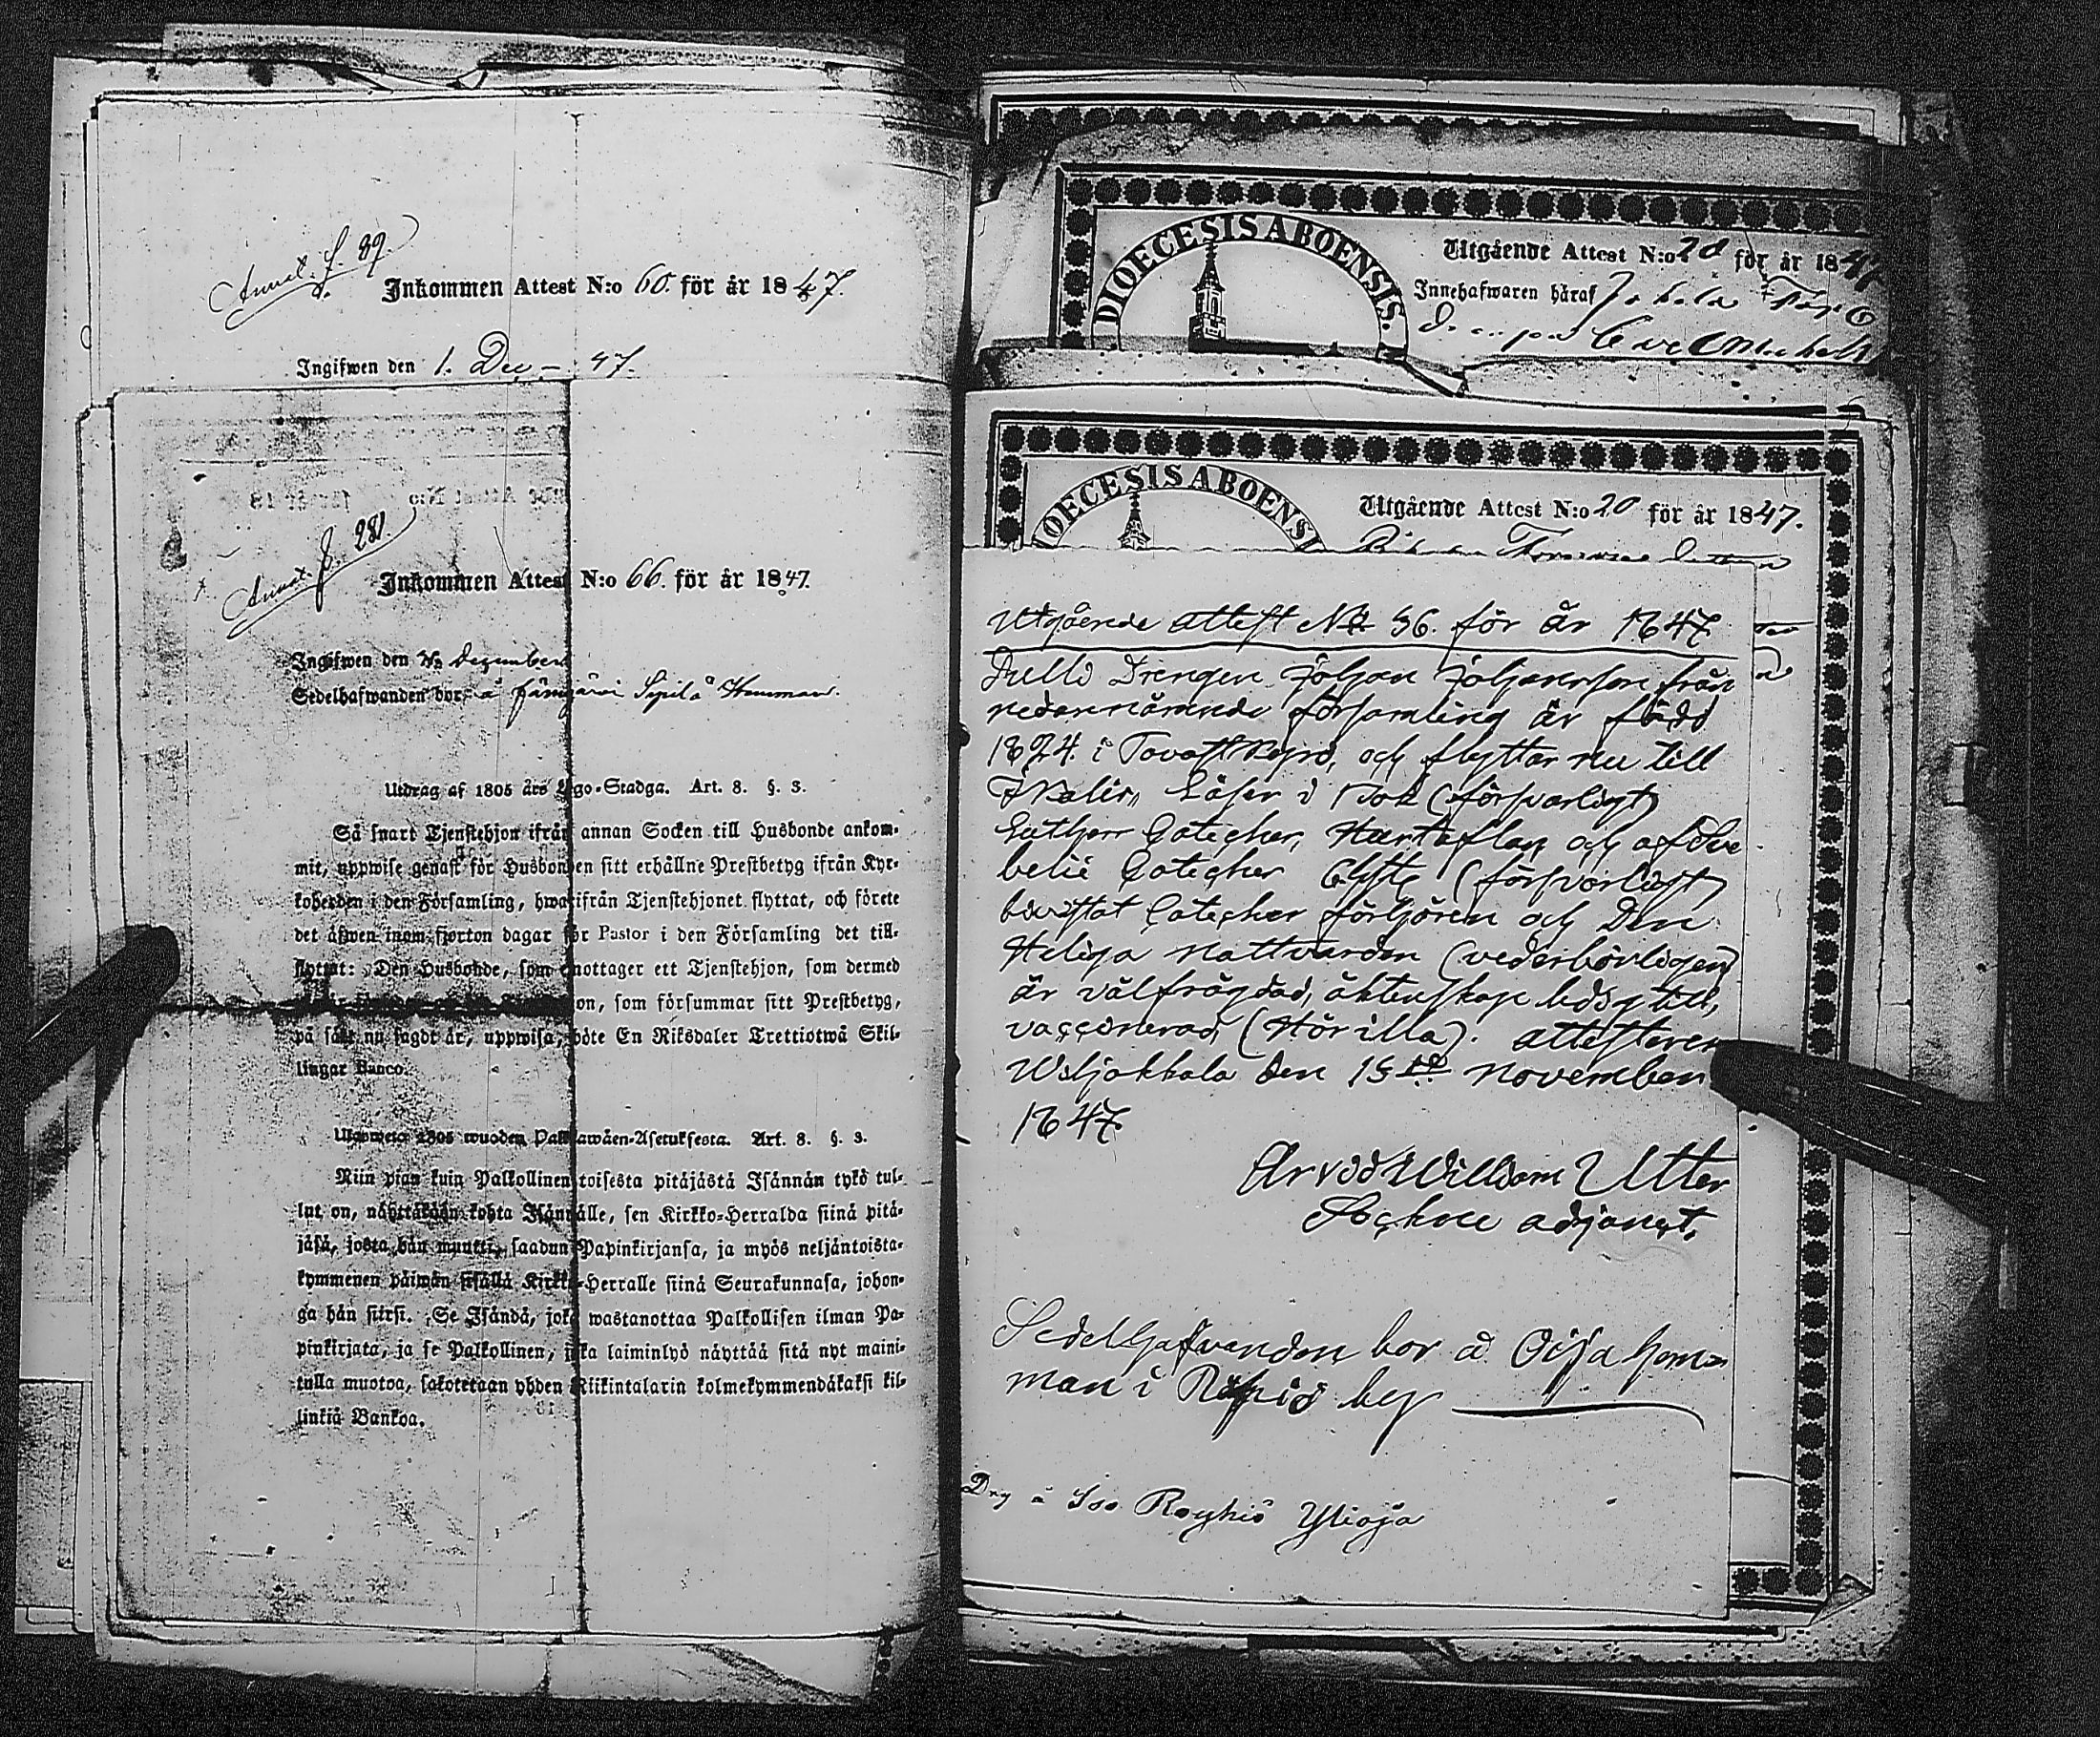 Annot. f. 89.
Inkommen Attest N:o 60. för år 1847.
Ingifwen den 1. Dec - 47.
Annot. f. 281.
Inkommen Attest N:o 66. för år 1847.
Ingifwen den December
Sedelhafwanden bor å Sipilä Hemman.
Utdrag af 1805 års Lego-Stadga. Art. 8. §. 3.
Så snart Tjenstehjon ifrån annan Socken till Husbonde ankom-
mit, uppwise genast för Husbonden sitt erhållne Prestbetyg ifrån Kyr-
koherden i den Församling, hwarifrån Tjenstehjonet flyttat, och förete
det äfwen inom fjorton dagar för Pastor i den Församling det till-
flyttat: Den Husbonde, som emottager ett Tjenstehjon, som dermed
on, som försummar sitt Prestbetyg,
på sätt nu sagdt är, uppwisa, böte En Riksdaler Trettiotwå Skil-
lingar Banco.
1805 wuoden Palkkawäen-Asetuksesta. Art. 8. §. 3.
Niin pian kuin Palkollinen toisesta pitäjästä Isännän tykö tul-
lut on, näyttäkään kohta Isännälle, sen Kirkko-Herralda siinä pitä-
jäsä, josta hän muutti, saadun Papinkirjansa, ja myös neljäntoista-
kymmenen päiwän sisällä Kirkko-Herralle siinä Seurakunnasa, johon-
ga hän siirsi. Se Isändä, joka wastanottaa Palkollisen ilman Pa-
pinkirjata, ja se Palkollinen, joka laiminlyö näyttää sitä nyt maini-
tulla muotoa, sakotetaan yhden Riikintalarin kolmekymmendäkaksi kil-
linkiä Bankoa.
DIOECESIS ABOENSIS.
Utgående Attest N:o 20 för år 1847
Innehafwaren häraf
DIOECESIS ABOENSI
Utgående Attest N:o 20 för år 1847.
Utgående attest No 56. för år 1847
Drengen Johan Johansson från
nedannämnde församling är född
1824. i Tavastkyro, och flyttar nu till
Ikalis, Läser i Bok (försvarligt)
Luthers Cateches, Hustaflan och af Sve
belii Cateches (försvarligt)
bivistat Cateches förhören och Den
Heliga nattvarden (vederbörligen)
är välfrägdad, äktenskaps ledig till,
vaccinerad, (Hör illa). attesterer
Wiljakkala den 15de november
1847.
Arvid William Utter
Sockne adjunct.
Sedelhafvanden bor å Oija hem=
man i Röyhiö by
Drg å Iso Röyhiö Ylioja